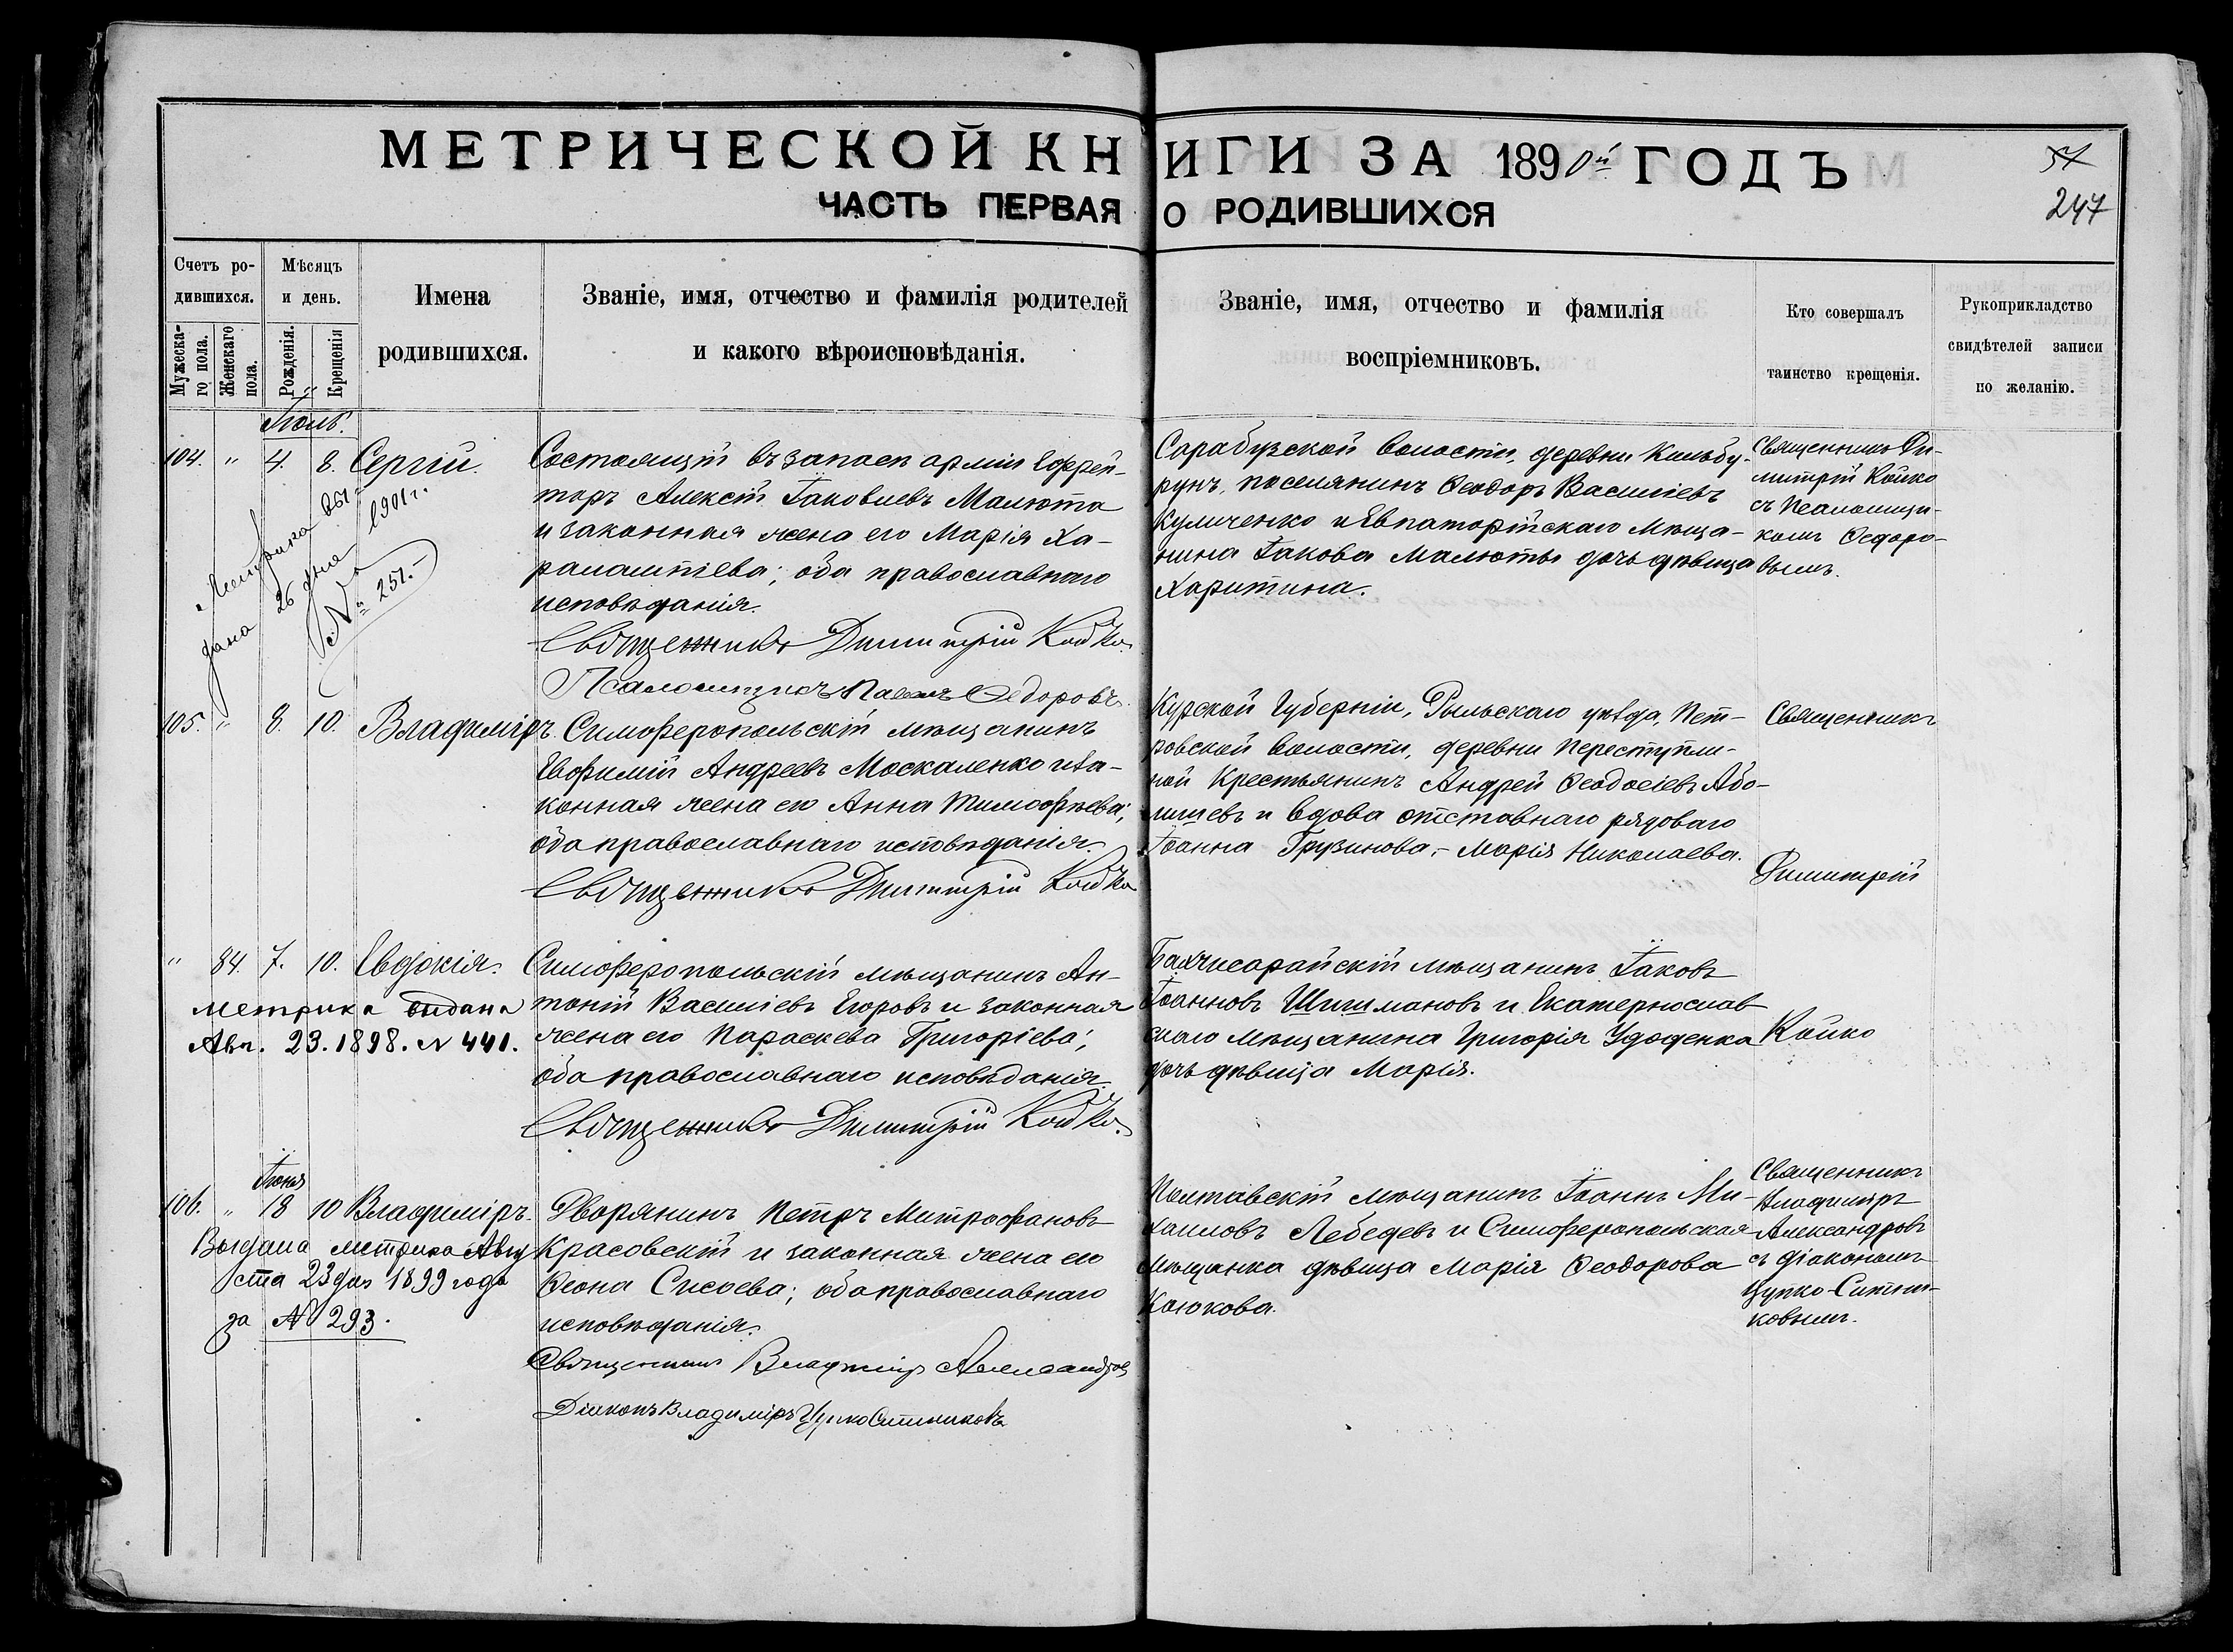 МЕТРИЧЕСКОЙ КНИГИ ЗА 1890й ГОДЪ
ЧАСТЬ ПЕРВАЯ О РОДИВШИХСЯ
57
247
Счетъ ро-
дившихся.
Мужеска-
го пола.
Женскаго
пола.
Мѣсяцъ
и день.
Рожденія.
Крещенія
Имена
родившихся.
Званіе, имя, отчество и фамилія родителей
и какого вѣроисповѣданія.
Званіе, имя, отчество и фамилія
воспріемниковъ.
Кто совершалъ
таинство крещенія.
Рукоприкладство
свидѣтелей записи
по желанію.
Іюль.
104. " 4. 8. Сергій.
Метрика вы-
дана 26 дня 1901 г.
№ 251.-
Состоящій въ запасѣ арміи Ефрей-
торъ Алексій Іаковлевъ Малюта
и законная жена его Марія Ха-
ралампіева; оба православнаго
исповѣданія.
Священникъ Димитрій Койко.
Псаломщикъ Павелъ Ѳедоровъ.
Сарабузской волости, деревни Кильбу-
рунъ, поселянинъ Ѳеодоръ Василіевъ
Куличенко и Евпаторійскаго мѣща-
нина Іакова Малюты дочь дѣвица
Харитина.
Священникъ Ди-
митрій Койко
съ Псаломщи-
комъ Ѳедоро-
вымъ.
105. " 8. 10. Владиміръ.
Симферопольскій мѣщанинъ
Евфимій Андреевъ Москаленко и за-
конная жена его Анна Тимофѣева;
оба православнаго исповѣданія.
Священникъ Димитрій Койко
Курской Губерніи, Рыльскаго уѣзда, Пет-
ровской волости, деревни Переступли-
ной Крестьянинъ Андрей Ѳеодосіевъ Або-
лишевъ и вдова отставнаго рядоваго
Іоанна Грузинова,- Марія Николаева.
Священникъ
Димитрій
" 84. 7. 10. Евдокія.
Метрика видана
Авг. 23. 1898. N 441.
Симферопольскій мѣщанинъ Ан-
тоній Василіевъ Егоровъ и законная
жена его Параскева Григоріева;
оба православнаго исповѣданія.
Священникъ Димитрій Койко.
Бахчисарайскій мѣщанинъ Іаковъ
Іоанновъ Шишмановъ и Екатеринослав
скаго мѣщанина Григорія Удоденка
дочь дѣвица Марія.
Койко
Іюня
106. " 18 10 Владиміръ.
Выдана метрика Авгу
ста 23 дня 1899 года
за № 293.
Дворянинъ Петръ Митрофановъ
Красовскій и законная жена его
Ѳеона Сисоева; оба православнаго
исповѣданія.
Священникъ Владиміръ Александровъ
Діаконъ Владиміръ Цупко Ситниковъ
Полтавскій мѣщанинъ Іоаннъ Ми-
хаиловъ Лебедевъ и Симферопольская
мѣщанка дѣвица Марія Ѳеодорова
Каюкова.
Священникъ
Владиміръ
Александровъ
съ діакономъ
Цупко-Ситни-
ковымъ.